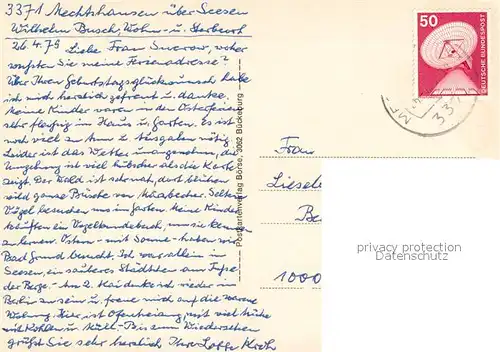 3371 Mechtshausen über Seesen
Wilhelm Busch, Wohn- u. Sterbeort
26.4.78 Liebe Frau woher
wussten Sie meine Ferienadresse?
Über Ihren Geburtstagsglückwunsch habe
ich mich herzlich gefreut u. danke.
Meine Kinder waren in den Osterferien
sehr fleissig in Haus u. Garten. Es ist
noch viel zu tun u. Ausgaben nötig.
Leider ist das Wetter unangenehm, die
Umgebung ist viel hübscher als die Karte
zeigt. Der Wald ist so nah, dort blühen
wild ganze Büsche von Märzbecher. Seltene
Vögel besuchen uns im Garten. Meine Kinder
kauften ein Vogelkundebuch, um sie kennen
zu lernen. Ostern - mit Sonne - haben wir
Bad Grund besucht. Ich war allein in
Seesen, ein sauberes Städtchen am Fusse
der Berge. - Am 2. Mai denke ich wieder in
Berlin zu sein u. freue mich auf die warme
Wohnung. Hier ist Ofenheizung mit viel Mühe
mit Kohlen u. Müll - Bis zum Wiedersehen
grüßt Sie sehr herzlich Ihre Lotte
Postkartenverlag Börse, 3062 Bückeburg
50
DEUTSCHE BUNDESPOST
337
Frau
Liesel
Be
1000
privacy protection